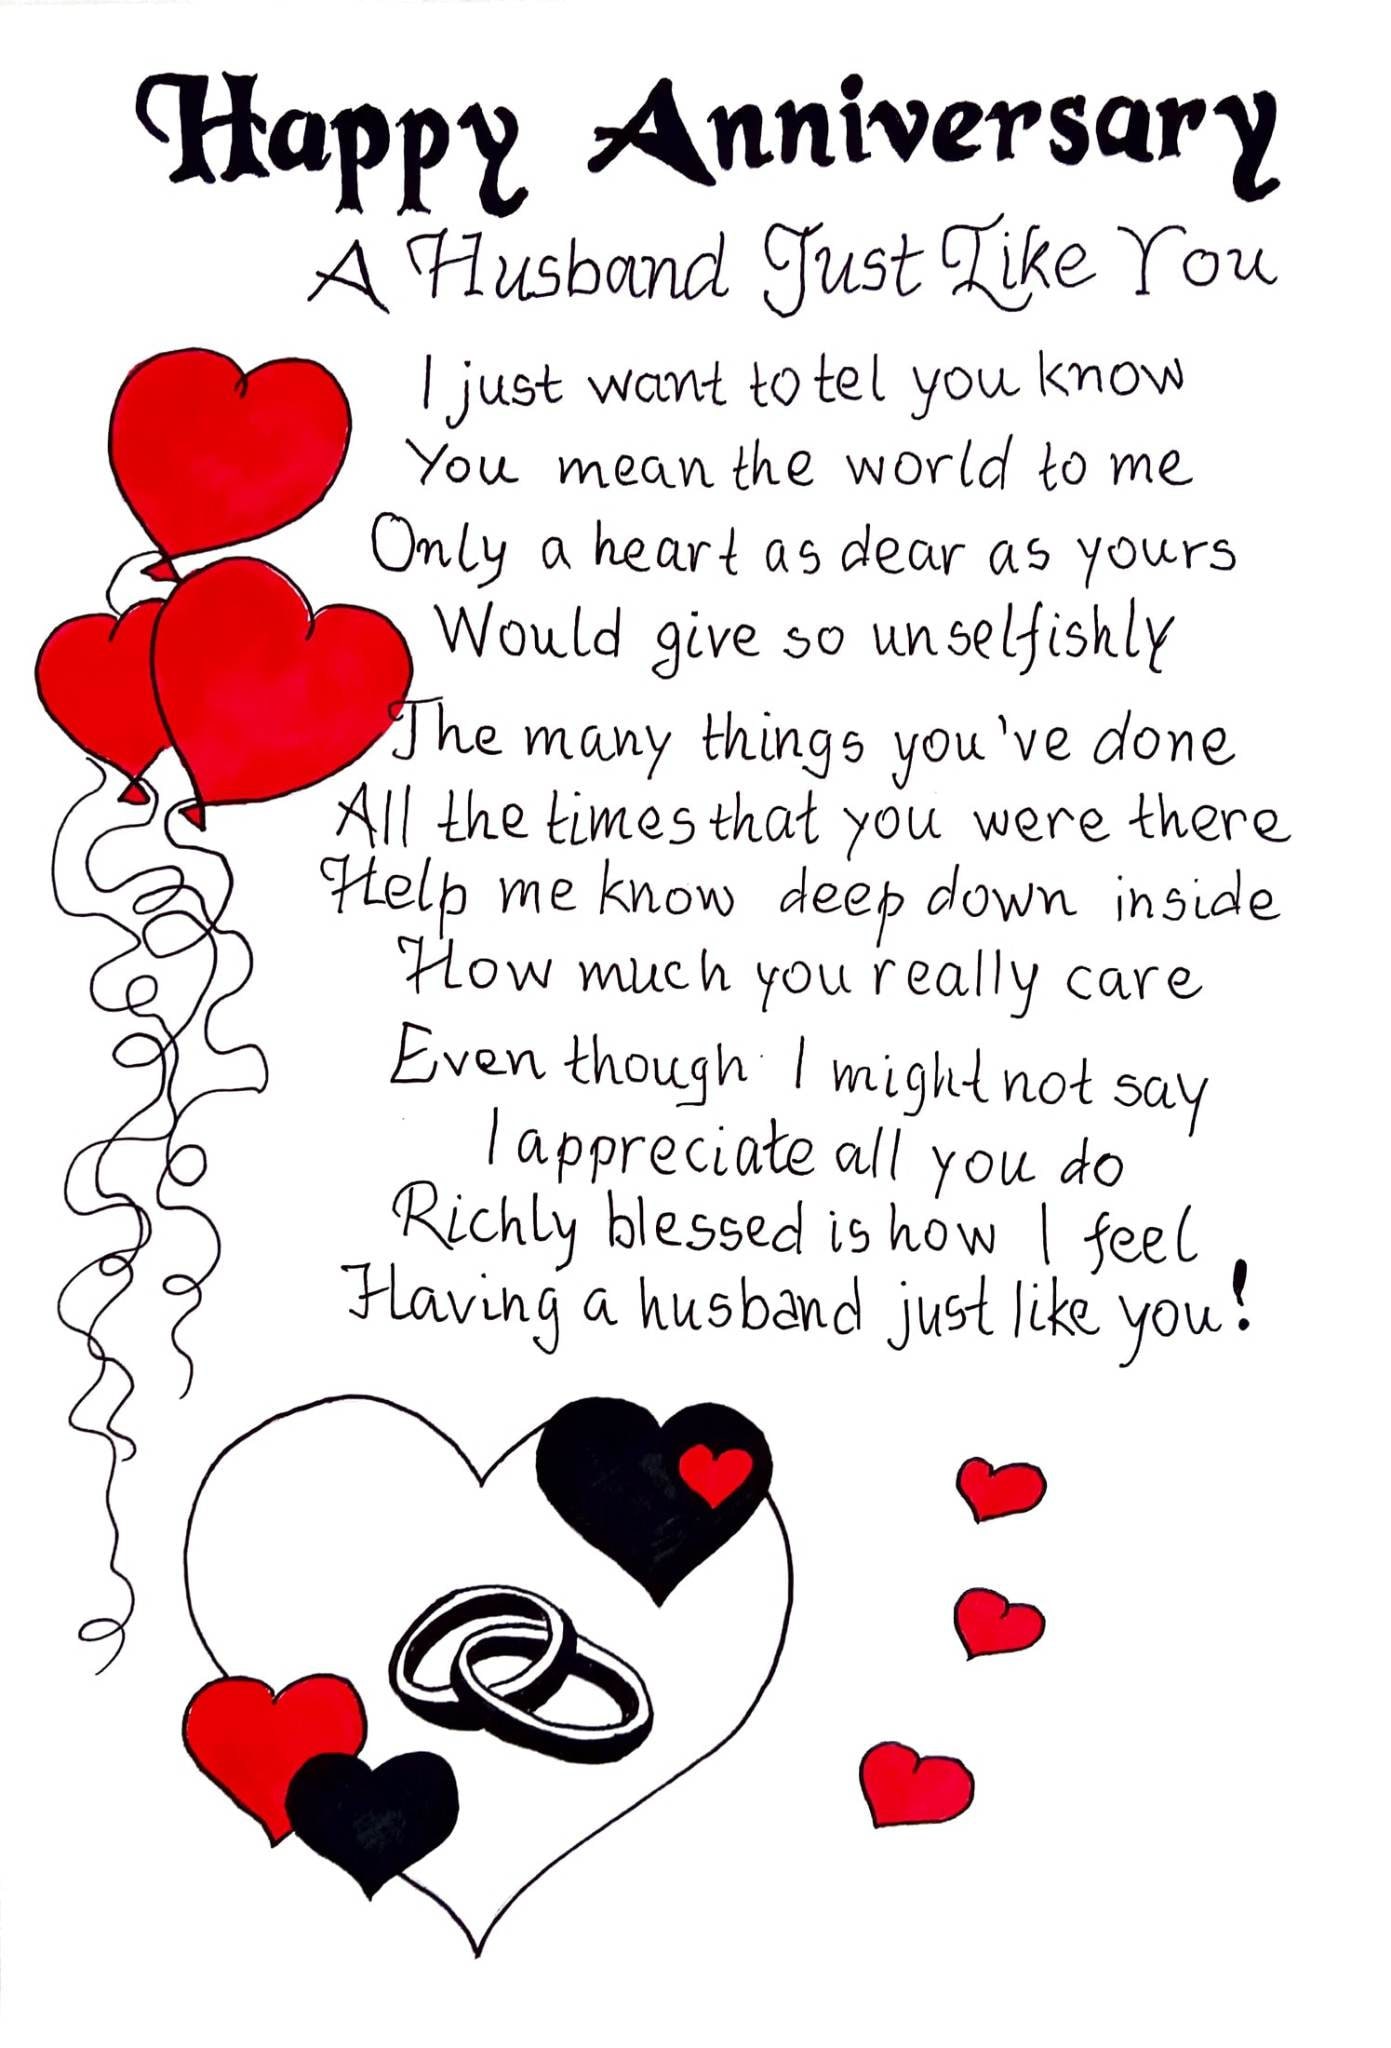 Happy Anniversary
A Husband Just Like You
I just want to tel you know
You mean the world to me
Only a heart as dear as yours
Would give so unselfishly
The many things you've done
All the times that you were there
Help me know deep down inside
How much you really care
Even though I might not say
I appreciate all you do
Richly blessed is how I feel
Having a husband just like you!